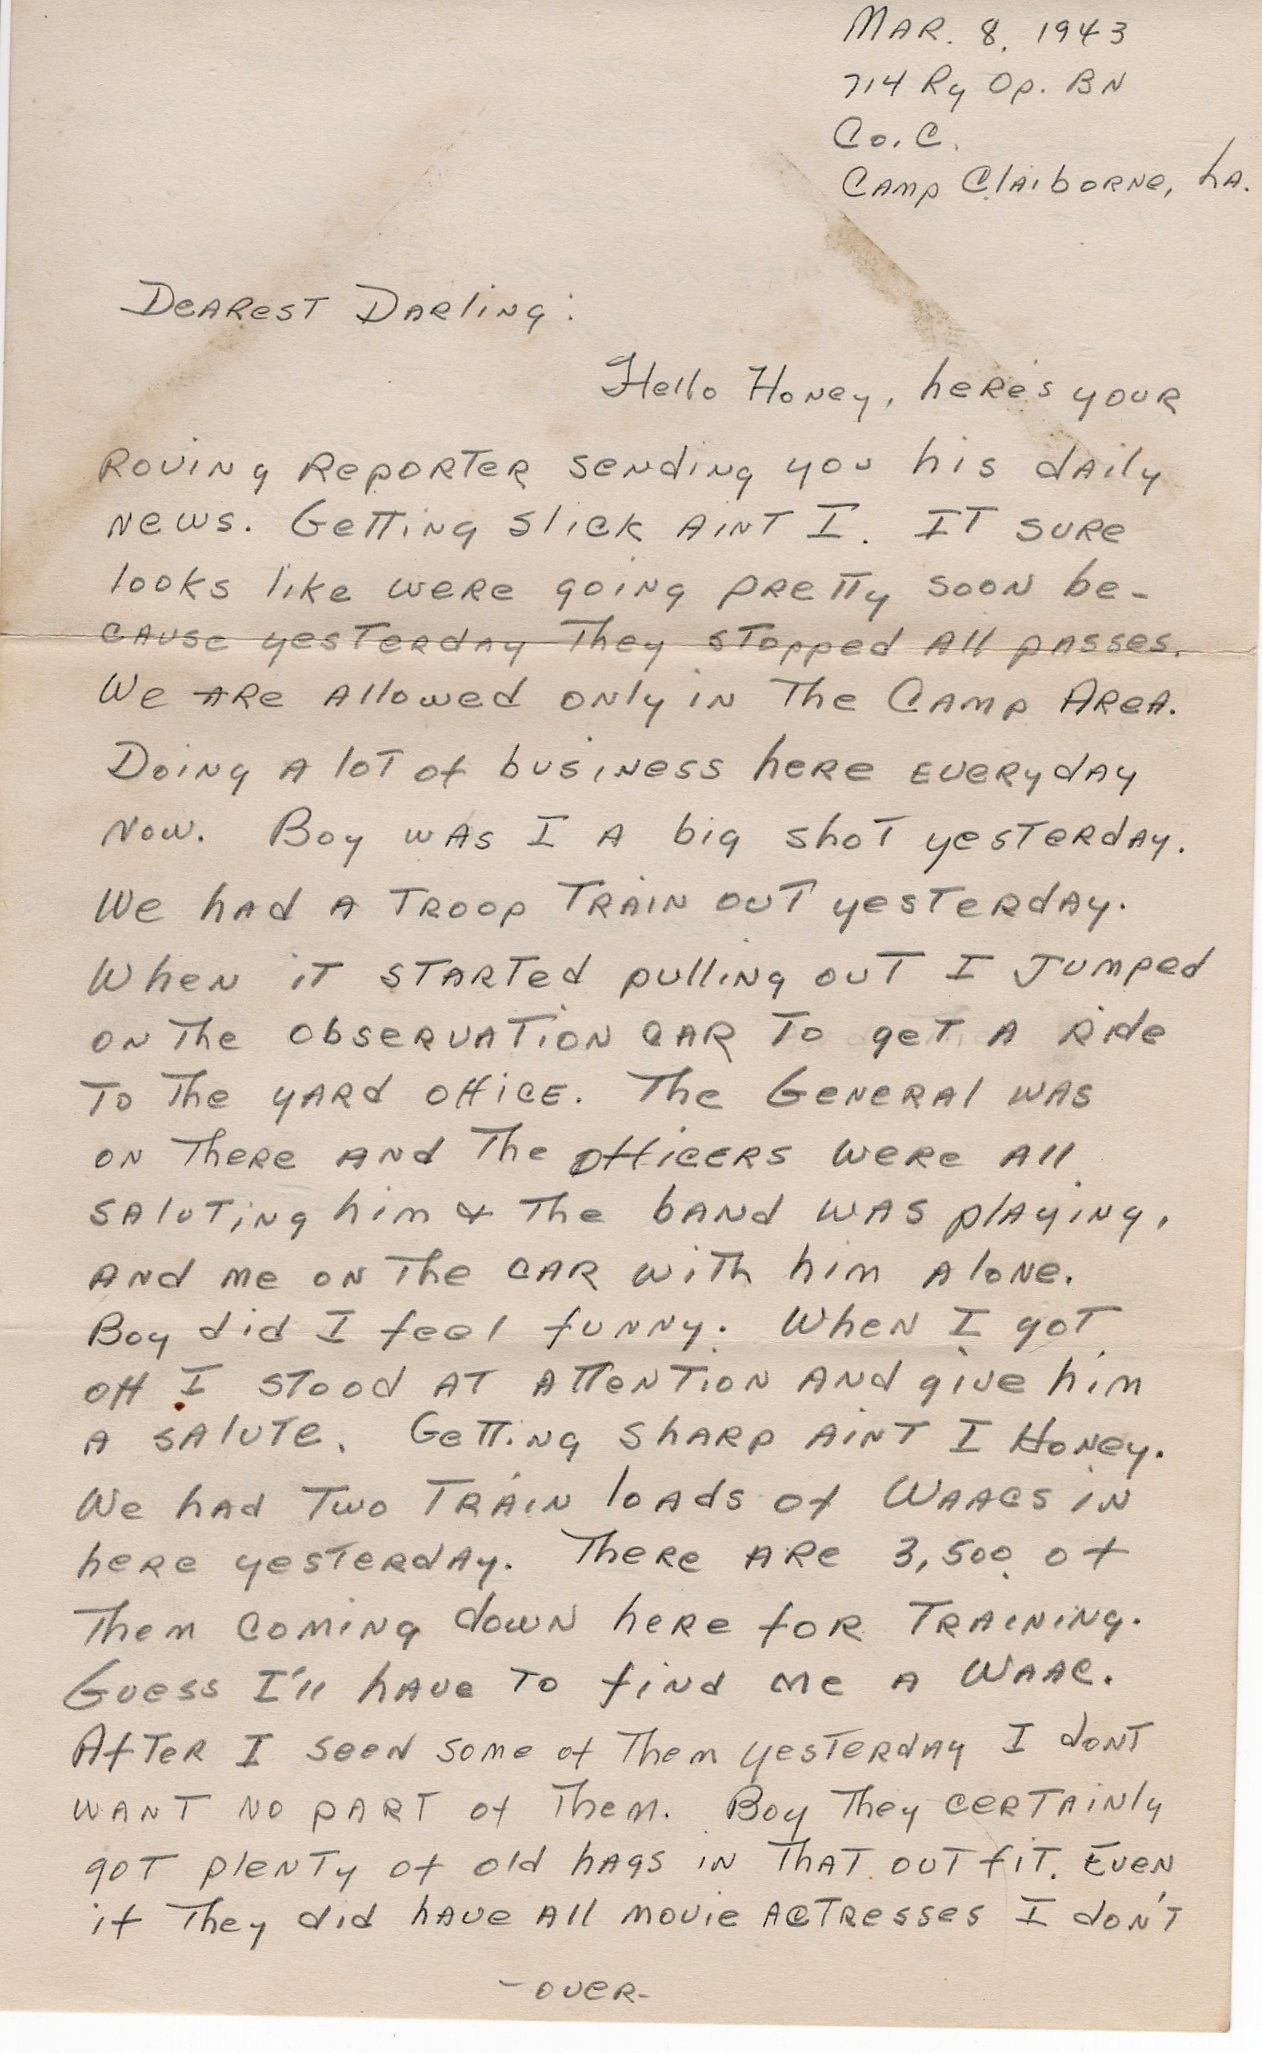 Mar. 8, 1943
714 Ry Op. Bn
Co. C.
Camp Claiborne, La.
Dearest Darling:
Hello Honey, here's your
roving reporter sending you his daily
news. Getting slick aint I. It sure
looks like were going pretty soon be-
cause yesterday they stopped all passes.
We are allowed only in the Camp Area.
Doing a lot of business here everyday
now. Boy was I a big shot yesterday.
We had a troop train out yesterday.
When it started pulling out I jumped
on the observation car to get a ride
to the yard office. The General was
on there and the officers were all
saluting him & the band was playing,
and me on the car with him alone.
Boy did I feel funny. When I got
off I stood at attention and give him
a salute. Getting sharp aint I Honey.
We had two train loads of Waacs in
here yesterday. There are 3,500 of
them coming down here for training.
Guess I'll have to find me a Waac.
After I seen some of them yesterday I dont
want no part of them. Boy they certainly
got plenty of old hags in that outfit. Even
if they did have all movie actresses I don't
-over-